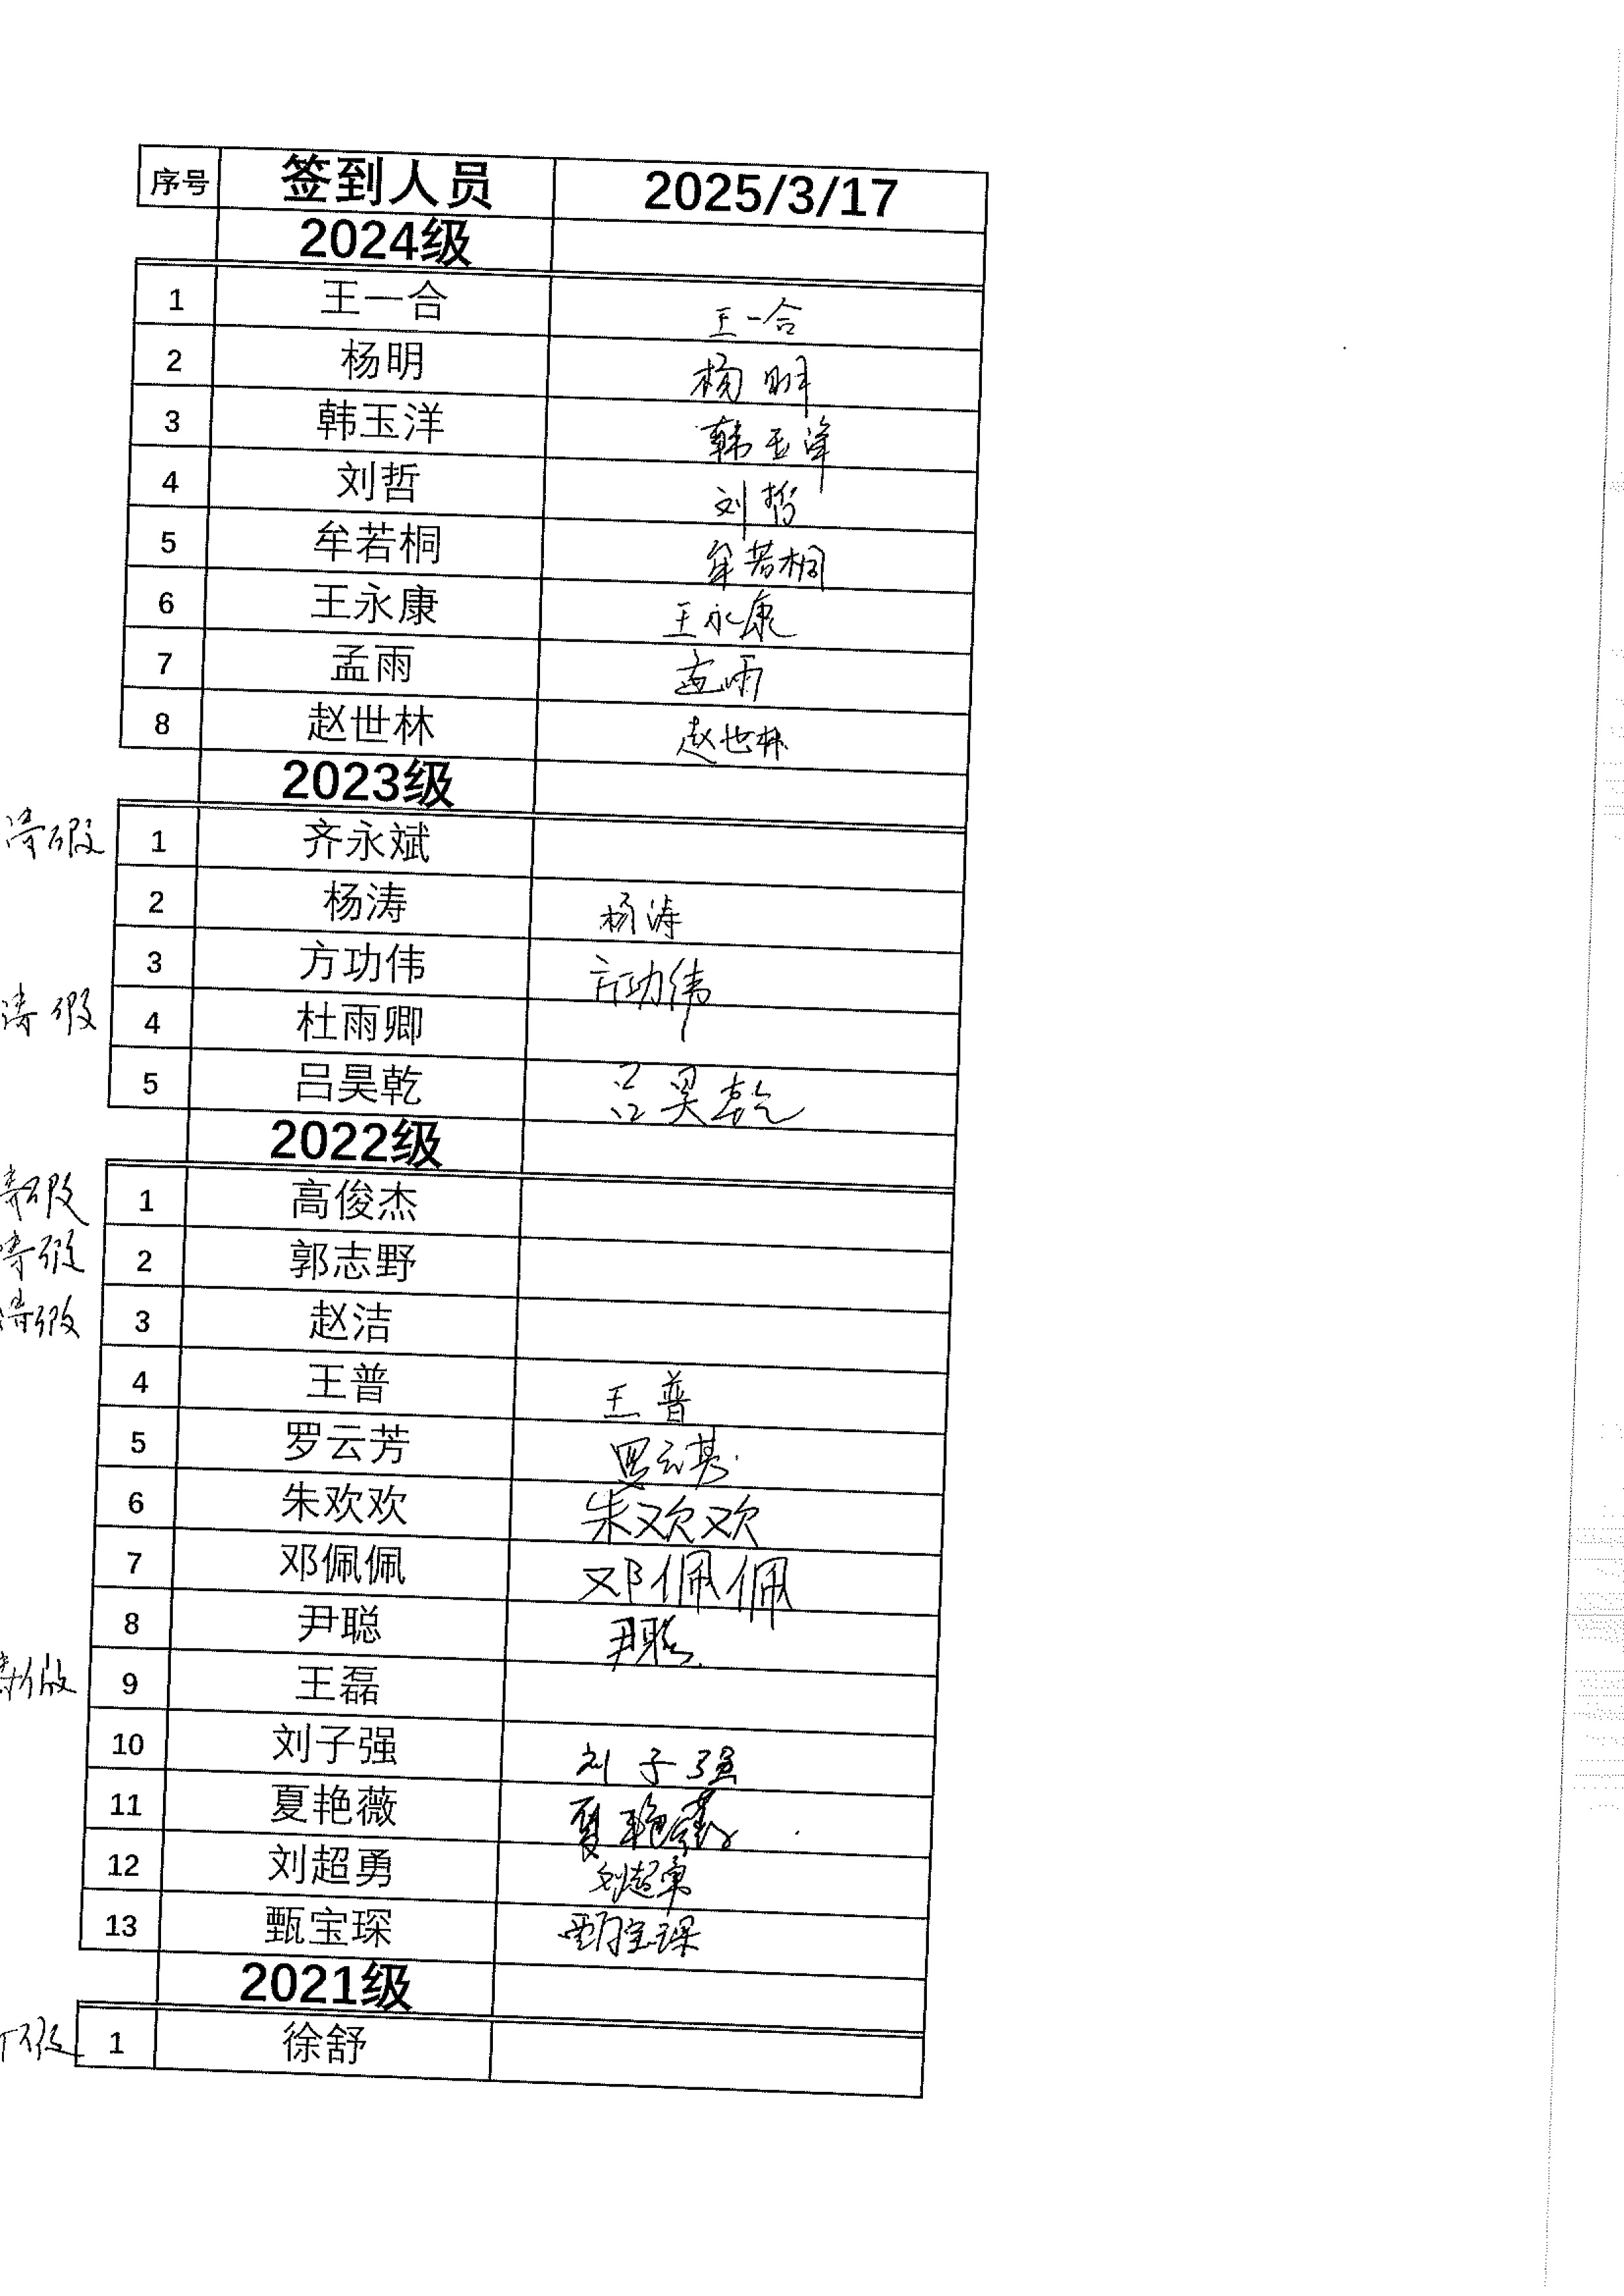 序号 签到人员 2025/3/17
2024级
1 王一合 王一合
2 杨明 杨明
3 韩玉洋 韩玉洋
4 刘哲 刘哲
5 牟若桐 牟若桐
6 王永康 王永康
7 孟雨 孟雨
8 赵世林 赵世林
2023级
请假 1 齐永斌
2 杨涛 杨涛
3 方功伟 方功伟
请假 4 杜雨卿
5 吕昊乾 吕昊乾
2022级
请假 1 高俊杰
请假 2 郭志野
请假 3 赵洁
4 王普 王普
5 罗云芳 罗云芳
6 朱欢欢 朱欢欢
7 邓佩佩 邓佩佩
8 尹聪 尹聪
请假 9 王磊
10 刘子强 刘子强
11 夏艳薇 夏艳薇
12 刘超勇 刘超勇
13 甄宝琛 甄宝琛
2021级
假 1 徐舒